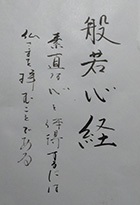 般若心経
素直な心を体得するには
仏さまを拝むことである